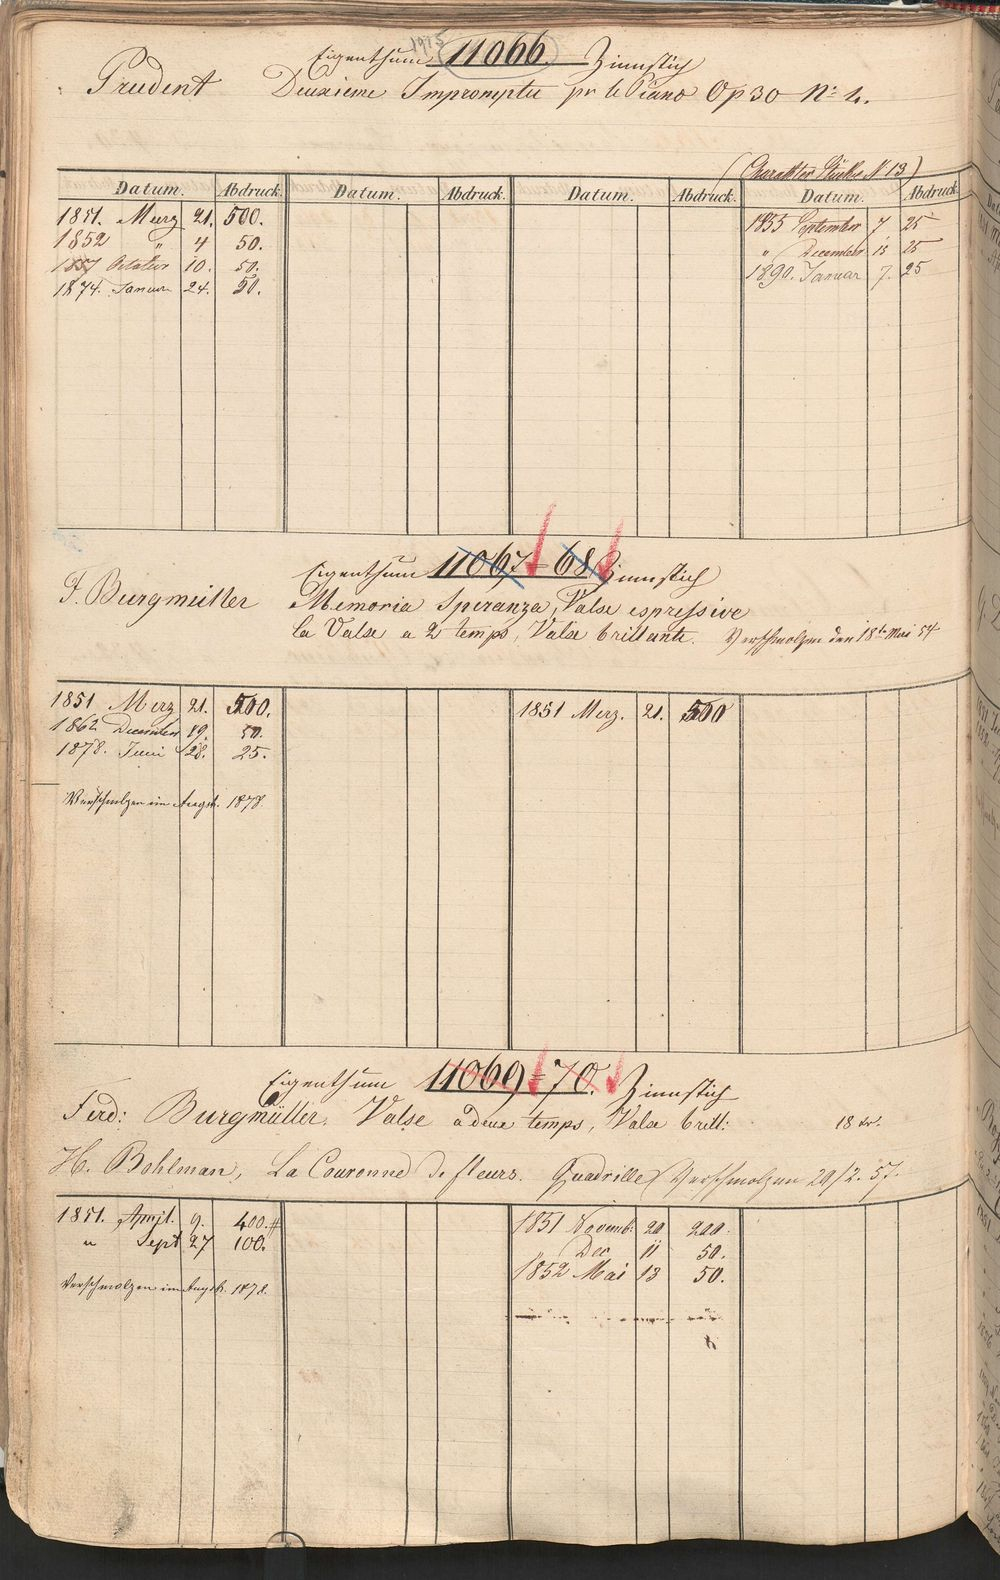 1915
Eigenthum 11066. Zinnstich
Prudent Deuxieme Impromptu pr le Piano Op 30 No 4.
(Charakter Stücke N 13)
Datum. Abdruck. Datum. Abdruck. Datum. Abdruck. Datum. Abdruck.
1851. Merz 21. 500. 1855 September 7 25
1852 " 4 50. " December 13 25
1857 October 10. 50. 1890. Januar 7. 25
1874. Januar 24. 50.
Eigenthum 11067 = 68. Zinnstich
F. Burgmüller Memoria Speranza, Valse espressive
la Valse a 2 temps, Valse brillante. Verschmolzen den 18ten Mai 54
1851 Merz 21. 500. 1851 Merz. 21. 500
1862 December 19. 50.
1878. Juni 28. 25.
Verschmolzen im Augst. 1878.
Eigenthum 11069 = 70. Zinnstich
Ferd: Burgmüller. Valse a deux temps, Valse brill: 18
H. Bohlman, La Couronne de fleurs. Quadrille Verschmolzen 29/2. 57.
1851. April. 9. 400. 1851 Novemb: 20 200.
" Sept 27 100. Dec 11 50.
1852 Mai 13 50.
Verschmolzen im Augst. 1878.